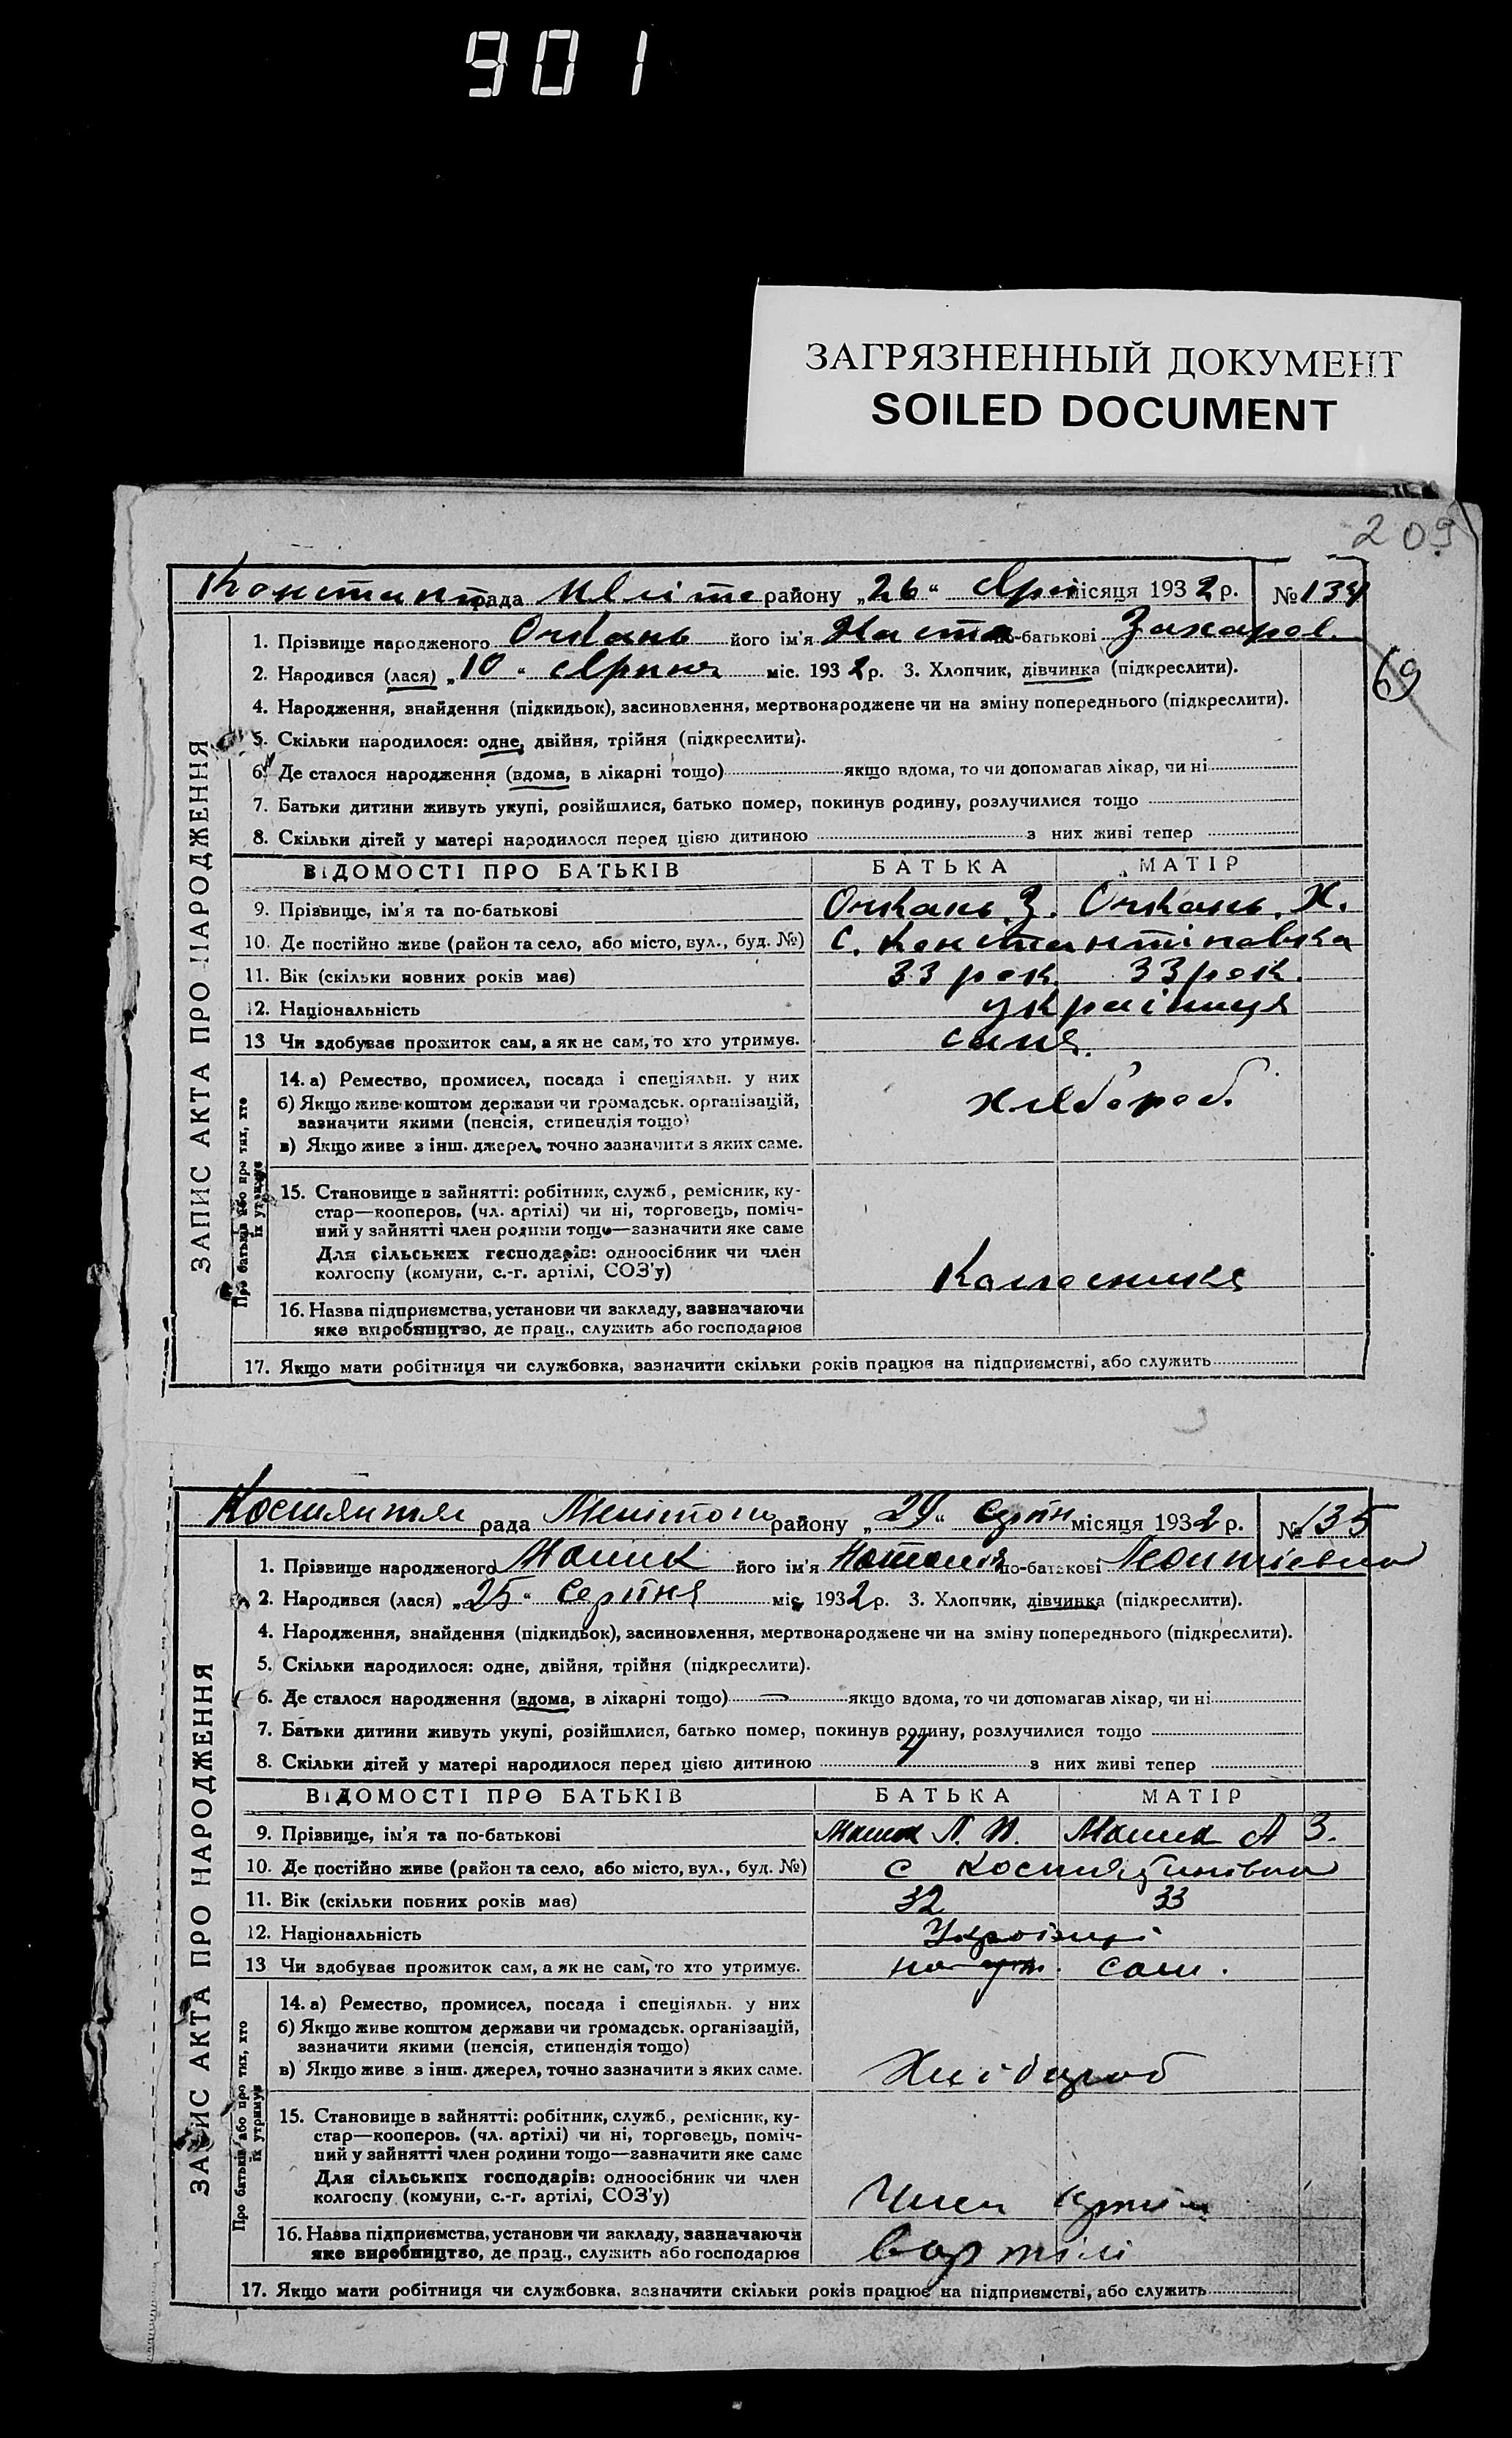 901
ЗАГРЯЗНЕННЫЙ ДОКУМЕНТ
SOILED DOCUMENT
209
рада району „26“ місяця 1932 р. № 134
1. Прізвище народженого його ім'я по-батькові Захаров.
69
2. Народився (лася) „10“ міс. 1932 р. 3. Хлопчик, дівчинка (підкреслити).
4. Народження, знайдення (підкидьок), засиновлення, мертвонароджене чи на зміну попереднього (підкреслити).
5. Скільки народилося: одне, двійня, трійня (підкреслити).
6. Де сталося народження (вдома, в лікарні тощо) якщо вдома, то чи допомагав лікар, чи ні
7. Батьки дитини живуть укупі, розійшлися, батько помер, покинув родину, розлучилися тощо
8. Скільки дітей у матері народилося перед цією дитиною з них живі тепер
ЗАПИС АКТА ПРО НАРОДЖЕННЯ
ВІДОМОСТІ ПРО БАТЬКІВ БАТЬКА МАТІР
9. Прізвище, ім'я та по-батькові
10. Де постійно живе (район та село, або місто, вул., буд. №) с. Константіновка
11. Вік (скільки повних років має) 33 рок. 33 рок.
12. Національність україниця
13 Чи здобував прожиток сам, а як не сам, то хто утримує.
Про батьків або про тих, хто їх утримує
14. а) Ремество, промисел, посада і спеціяльн. у них
б) Якщо живе коштом держави чи громадськ. організацій,
зазначити якими (пенсія, стипендія тощо)
в) Якщо живе з інш. джерел, точно зазначити з яких саме.
15. Становище в зайнятті: робітник, служб., ремісник, ку-
стар—кооперов. (чл. артілі) чи ні, торговець, поміч-
ний у зайнятті член родини тощо—зазначити яке саме
Для сільських господарів: одноосібник чи член
колгоспу (комуни, с.-г. артілі, СОЗ'у)
16. Назва підприємства, установи чи закладу, зазначаючи
яке виробництво, де прац., служить або господарює
17. Якщо мати робітниця чи службовка, зазначити скільки років працює на підприємстві, або служить
рада району „29“ Серпн місяця 1932 р. № 135
1. Прізвище народженого його ім'я Наталія по-батькові Леонтієвна
2. Народився (лася) „25“ Серпня міс. 1932 р. 3. Хлопчик, дівчинка (підкреслити).
4. Народження, знайдення (підкидьок), засиновлення, мертвонароджене чи на зміну попереднього (підкреслити).
5. Скільки народилося: одне, двійня, трійня (підкреслити).
6. Де сталося народження (вдома, в лікарні тощо) якщо вдома, то чи допомагав лікар, чи ні
7. Батьки дитини живуть укупі, розійшлися, батько помер, покинув родину, розлучилися тощо
8. Скільки дітей у матері народилося перед цією дитиною 4 з них живі тепер
ЗАПИС АКТА ПРО НАРОДЖЕННЯ
ВІДОМОСТІ ПРО БАТЬКІВ БАТЬКА МАТІР
9. Прізвище, ім'я та по-батькові
10. Де постійно живе (район та село, або місто, вул., буд. №) с
11. Вік (скільки повних років має) 32 33
12. Національність Україиці
13 Чи здобував прожиток сам, а як не сам, то хто утримує. сам.
Про батьків або про тих, хто їх утримує
14. а) Ремество, промисел, посада і спеціяльн. у них
б) Якщо живе коштом держави чи громадськ. організацій,
зазначити якими (пенсія, стипендія тощо)
в) Якщо живе з інш. джерел, точно зазначити з яких саме. Хлібороб
15. Становище в зайнятті: робітник, служб., ремісник, ку-
стар—кооперов. (чл. артілі) чи ні, торговець, поміч-
ний у зайнятті член родини тощо—зазначити яке саме
Для сільських господарів: одноосібник чи член
колгоспу (комуни, с.-г. артілі, СОЗ'у) Член артіли
16. Назва підприємства, установи чи закладу, зазначаючи
яке виробництво, де прац., служить або господарює в артілі
17. Якщо мати робітниця чи службовка, зазначити скільки років працює на підприємстві, або служить